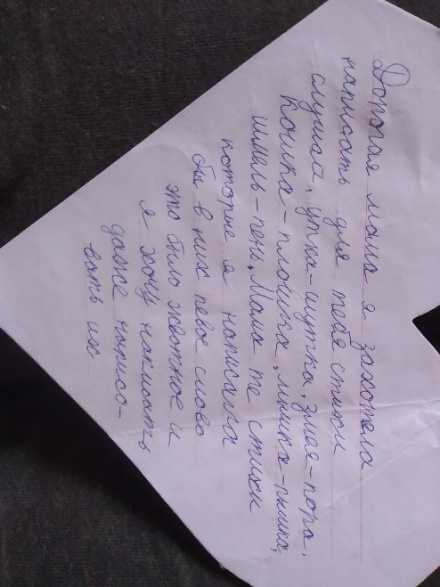 Дорогая мама я захотела
написать для тебя стихи
слушай, утка-шутка, змея-пора,
Кошка-плошка, мышка-пышка,
шмель-пень, Мама те стихи
которые я написала
бы в них перво слово
это было животное и
я хочу написать
даже нарисо-
вать их